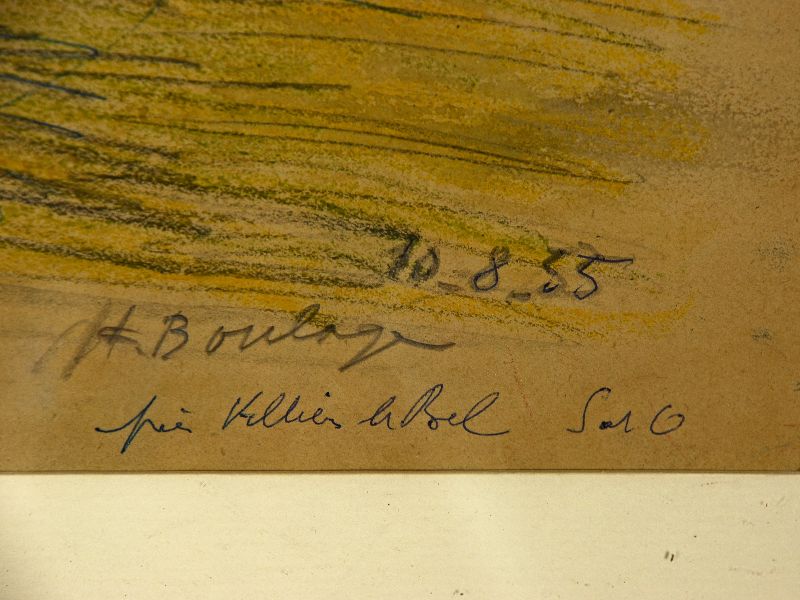 10_8_55
H. Boulage
près Villiers le Bel S et O